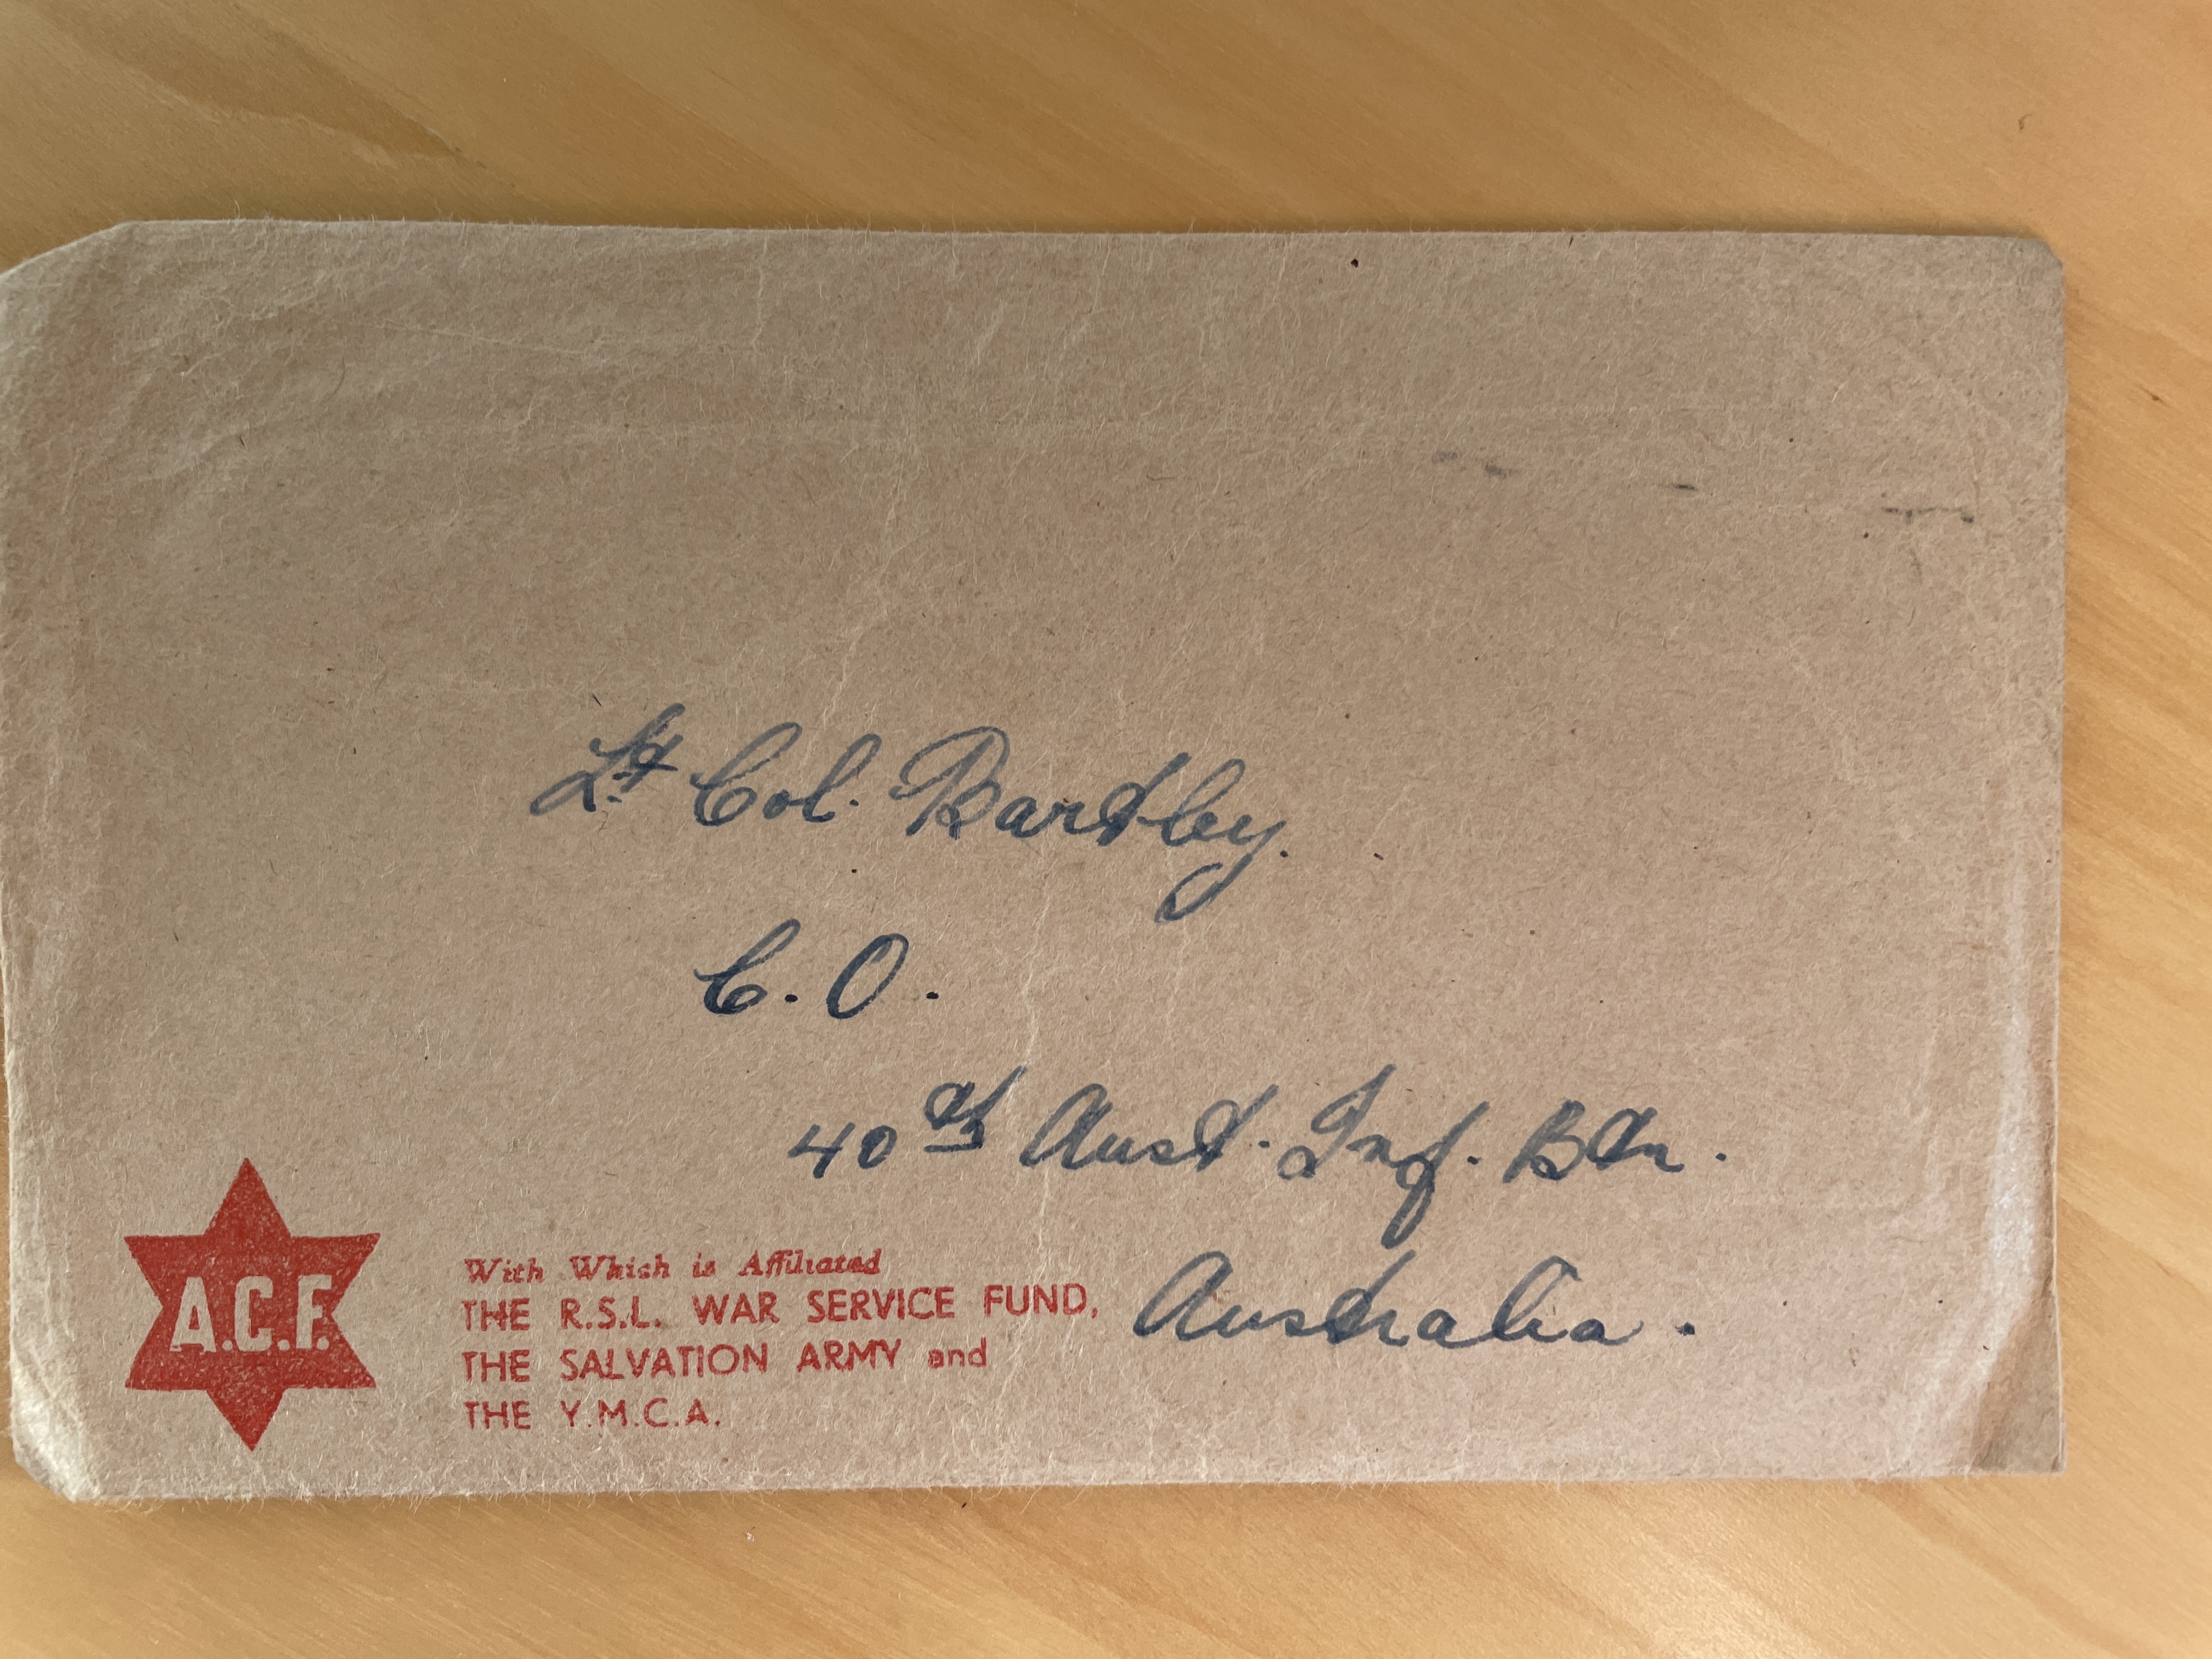 Lt Col. Bartley.
C. O.
40th Aust. Inf. Btn.
Australia.
A.C.F.
With Which is Affiliated
THE R.S.L. WAR SERVICE FUND,
THE SALVATION ARMY and
THE Y.M.C.A.